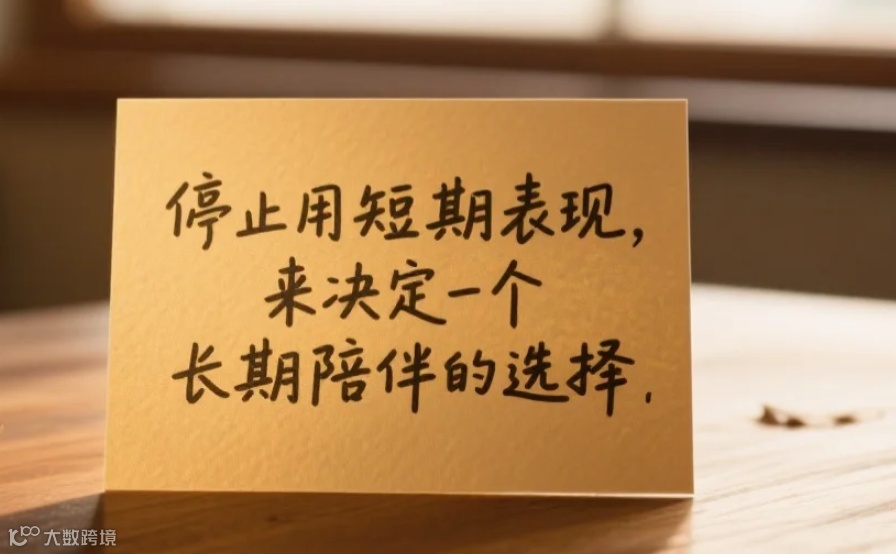 停止用短期表现，
来决定一个
长期陪伴的选择.
大数跨境